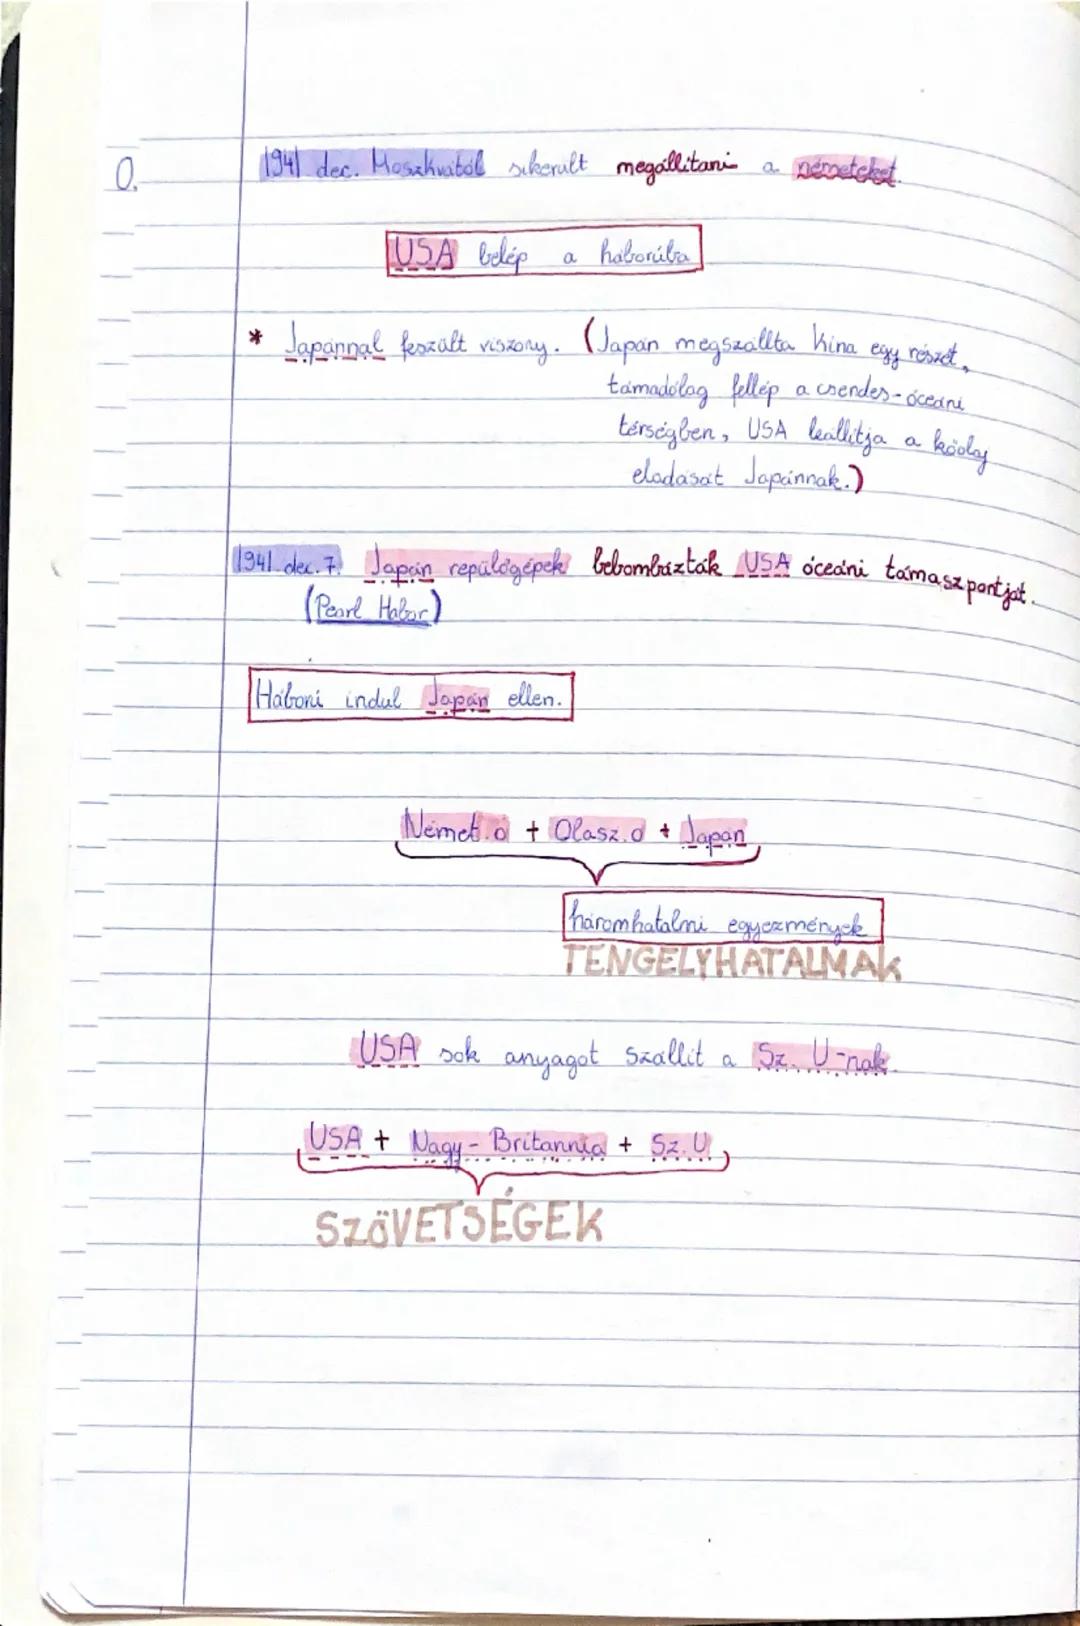 O.
1941 dec. Moszkvától sikerült megállítani a németeket.
USA belép a háborúba
* Japánnal feszült viszony. (Japán megszállta Kína egy részét,
támadólag fellép a csendes-óceáni
térségben, USA leállítja a kőolaj
eladását Japánnak.)
1941. dec. 7. Japán repülőgépek bebombázták USA óceáni támaszpontját.
(Pearl Habor)
Háború indul Japán ellen.
Német.o + Olasz.o + Japán
háromhatalmi egyezmények
TENGELYHATALMAK
USA sok anyagot szállít a Sz. U-nak.
USA + Nagy-Britannia + Sz.U.
SZÖVETSÉGEK